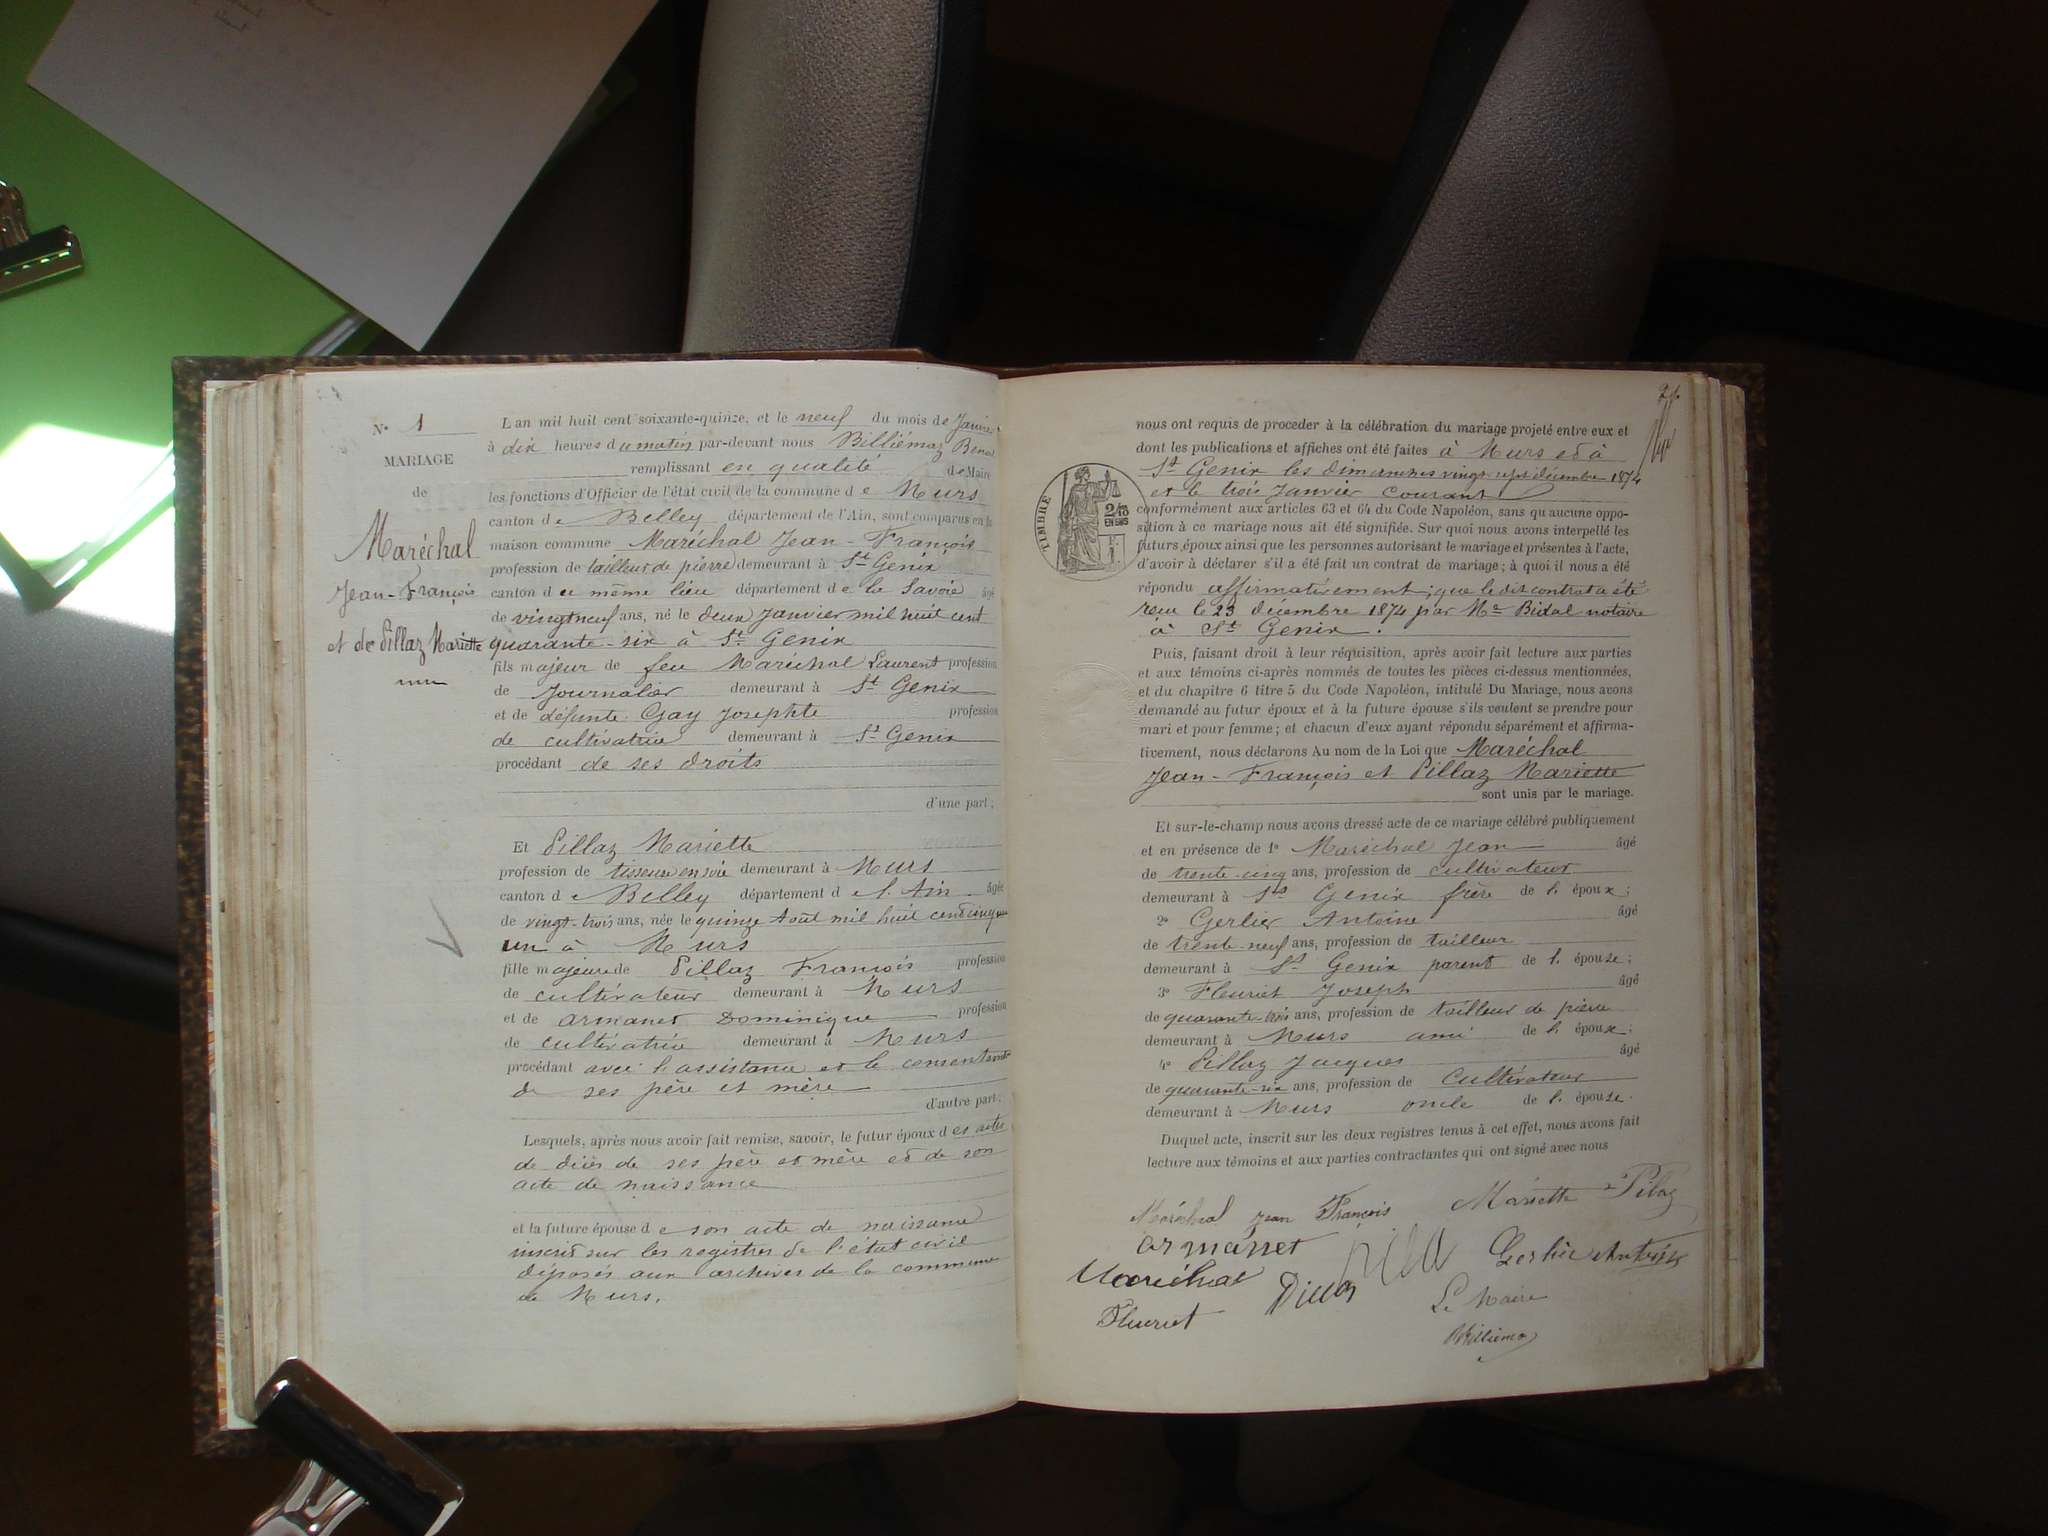 N° 1
MARIAGE
de
Maréchal
Jean-François
et de Pillaz Mariette
L'an mil huit cent soixante-quinze, et le neuf du mois de Janvier
à dix heures du matin par-devant nous Billiémaz Benoit
remplissant en qualité de Maire
les fonctions d'Officier de l'état civil de la commune de Murs
canton de Belley département de l'Ain, sont comparus en la
maison commune Maréchal Jean-François
profession de tailleur de pierre demeurant à St Genix
canton du même lieu département de la Savoie âgé
de vingt neuf ans, né le deux Janvier mil huit cent
quarante-six à St Genix
fils majeur de feu Maréchal Laurent profession
de Journalier demeurant à St Genix
et de défunte Gay Josephte profession
de cultivatrice demeurant à St Genix
procédant de ses droits
d'une part;
Et Pillaz Mariette
profession de tisseuse en soie demeurant à Murs
canton de Belley département de l'Ain âgée
de vingt-trois ans, née le quinze Août mil huit cent cinquante
un à Murs
fille majeure de Pillaz François profession
de cultivateur demeurant à Murs
et de Armanet Dominique profession
de cultivatrice demeurant à Murs
procédant avec l'assistance et le consentement
de ses père et mère
d'autre part;
Lesquels, après nous avoir fait remise, savoir, le futur époux des actes
de décès de ses père et mère et de son
acte de naissance
et la future épouse de son acte de naissance
inscrit sur les registres de l'état civil
déposés aux archives de la commune
de Murs.
nous ont requis de proceder à la célébration du mariage projeté entre eux et
dont les publications et affiches ont été faites à Murs et à
St Genix les dimanches vingt sept décembre 1874
et le trois Janvier courant
TIMBRE
2/10
EN SUS
conformément aux articles 63 et 64 du Code Napoléon, sans qu'aucune oppo-
sition à ce mariage nous ait été signifiée. Sur quoi nous avons interpellé les
futurs époux ainsi que les personnes autorisant le mariage et présentes à l'acte,
d'avoir à déclarer s'il a été fait un contrat de mariage; à quoi il nous a été
répondu affirmativement; que le dit contrat a été
reçu le 23 décembre 1874 par Me Bidal notaire
à St Genix.
Puis, faisant droit à leur réquisition, après avoir fait lecture aux parties
et aux témoins ci-après nommés de toutes les pièces ci-dessus mentionnées,
et du chapitre 6 titre 5 du Code Napoléon, intitulé Du Mariage, nous avons
demandé au futur époux et à la future épouse s'ils veulent se prendre pour
mari et pour femme; et chacun d'eux ayant répondu séparément et affirma-
tivement, nous déclarons Au nom de la Loi que Maréchal
Jean-François et Pillaz Mariette
sont unis par le mariage.
Et sur-le-champ nous avons dressé acte de ce mariage célébré publiquement
et en présence de 1° Maréchal Jean âgé
de trente-cinq ans, profession de cultivateur
demeurant à St Genix frère de l'époux;
2° Gerlier Antoine âgé
de trente-neuf ans, profession de tailleur
demeurant à St Genix parent de l'épouse;
3° Fleuriet Joseph âgé
de quarante-trois ans, profession de tailleur de pierre
demeurant à Murs ami de l'époux;
4° Pillaz Jacques âgé
de quarante-six ans, profession de Cultivateur
demeurant à Murs oncle de l'épouse.
Duquel acte, inscrit sur les deux registres tenus à cet effet, nous avons fait
lecture aux témoins et aux parties contractantes qui ont signé avec nous
Maréchal Jean François Mariette Pilaz
armanet Gerlier Antoine
Maréchal
Fleuriet Le Maire
Billiémaz